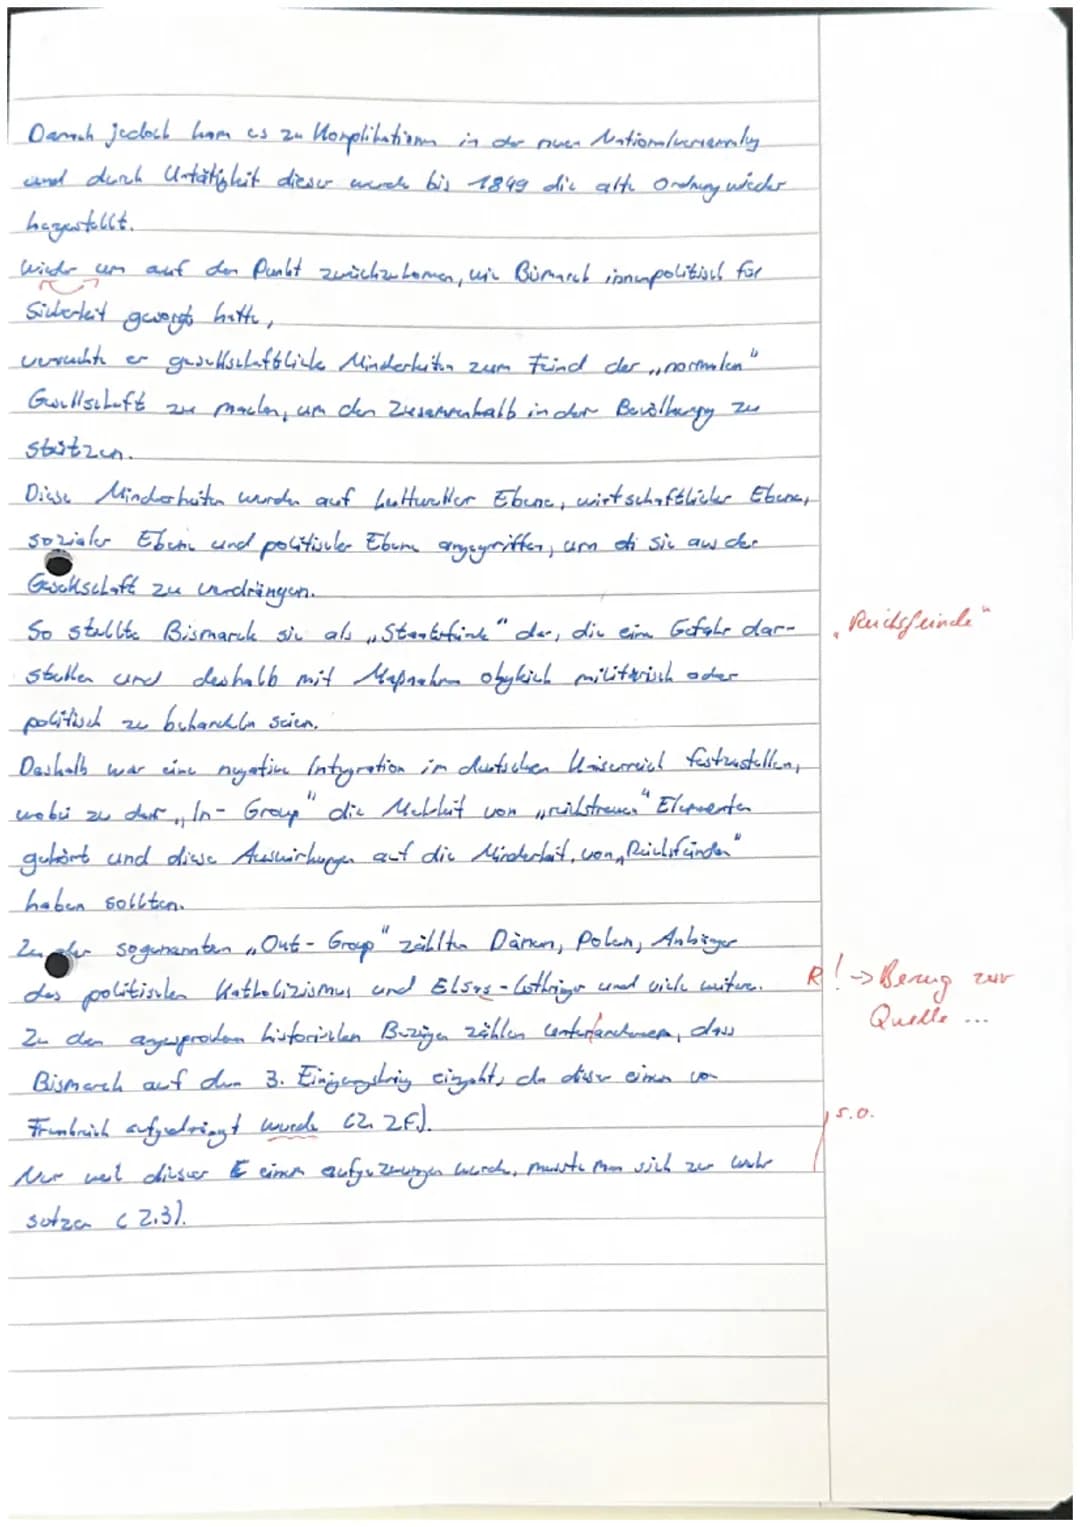 Danach jedoch kam es zu Komplikationen in der neuen Nationalversammlung
und durch Untätigkeit dieser wurde bis 1849 die alte Ordnung wieder
hergestellt.
Wieder um auf den Punkt zurückzukommen, wie Bismarck innenpolitisch für
Sicherheit gesorgt hatte,
versuchte er gesellschaftliche Minderheiten zum Feind der „normalen"
Gesellschaft zu machen, um den Zusammenhalb in der Bevölkerung zu
stützen.
Diese Minderheiten wurden auf kultureller Ebene, wirtschaftlicher Ebene,
sozialer Ebene und politischer Ebene angegriffen, um sie aus der
Gesellschaft zu verdrängen.
So stellte Bismarck sie als „Staatsfeinde" dar, die eine Gefahr dar-
„Reichsfeinde"
stellen und deshalb mit Maßnahmen obgleich militärisch oder
politisch zu behandeln seien.
Deshalb war eine negative Integration im deutschen Kaiserreich festzustellen,
wobei zu der „In-Group" die Mehrheit von „reichstreuen" Elementen
gehört und diese Auswirkungen auf die Minderheit, von „Reichsfeinden"
haben sollten.
Zu der sogenannten „Out-Group" zählten Dänen, Polen, Anhänger
des politischen Katholizismus und Elsas-Lothringer und viele weitere.
R ! → Bezug zur
Quelle ...
Zu den angesprochenen historischen Bezügen zählen, dass
Bismarck auf den 3. Einigungskrieg eingeht, da dieser einen von
Frankreich aufgedrängt wurde (Z. 2f).
s.o.
Nur weil dieser einem aufgezwungen wurde, musste man sich zur Wehr
setzen (Z.3).